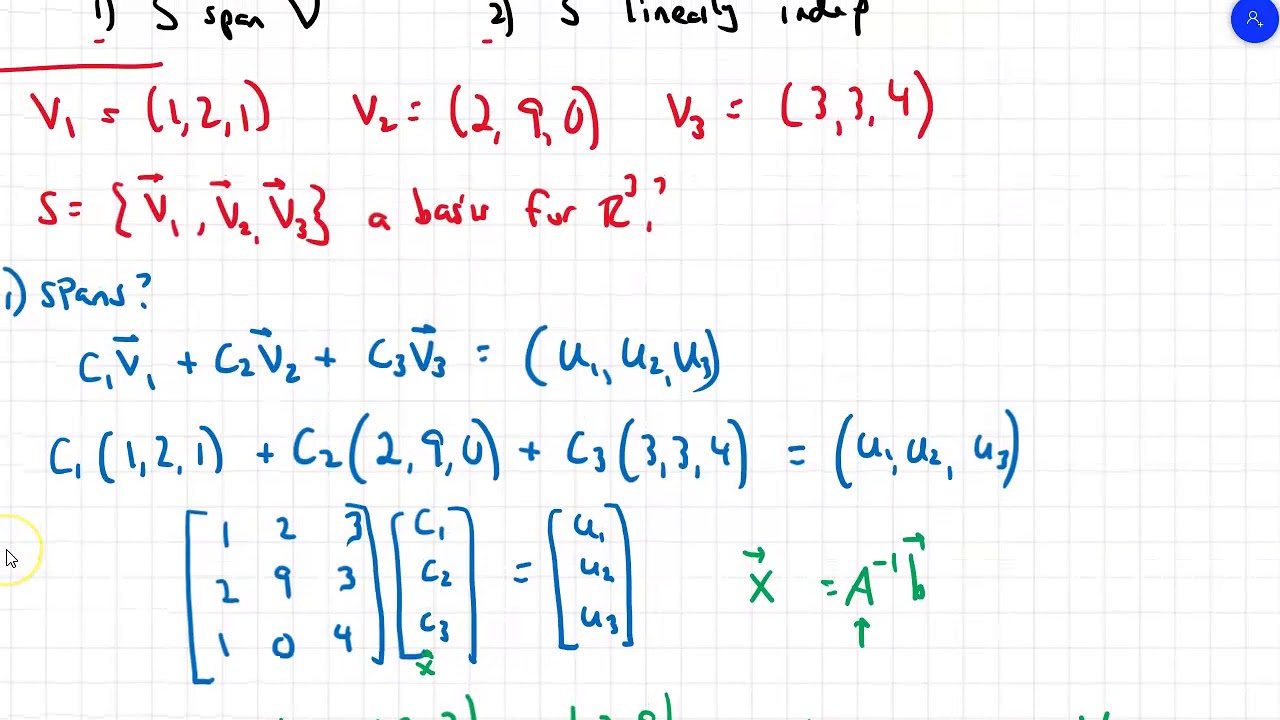 1) S span V 2) S linearly indep
V₁ = (1,2,1) V₂ = (2,9,0) V₃ = (3,3,4)
S = {V⃗₁, V⃗₂, V⃗₃} a basis for ℝ³?
1) spans?
C₁V⃗₁ + C₂V⃗₂ + C₃V⃗₃ = (u₁, u₂, u₃)
C₁(1,2,1) + C₂(2,9,0) + C₃(3,3,4) = (u₁, u₂, u₃)
[1 2 3] [C₁] [u₁]
[2 9 3] [C₂] = [u₂] x⃗ = A⁻¹b⃗
[1 0 4] [C₃] [u₃] ↑
x⃗